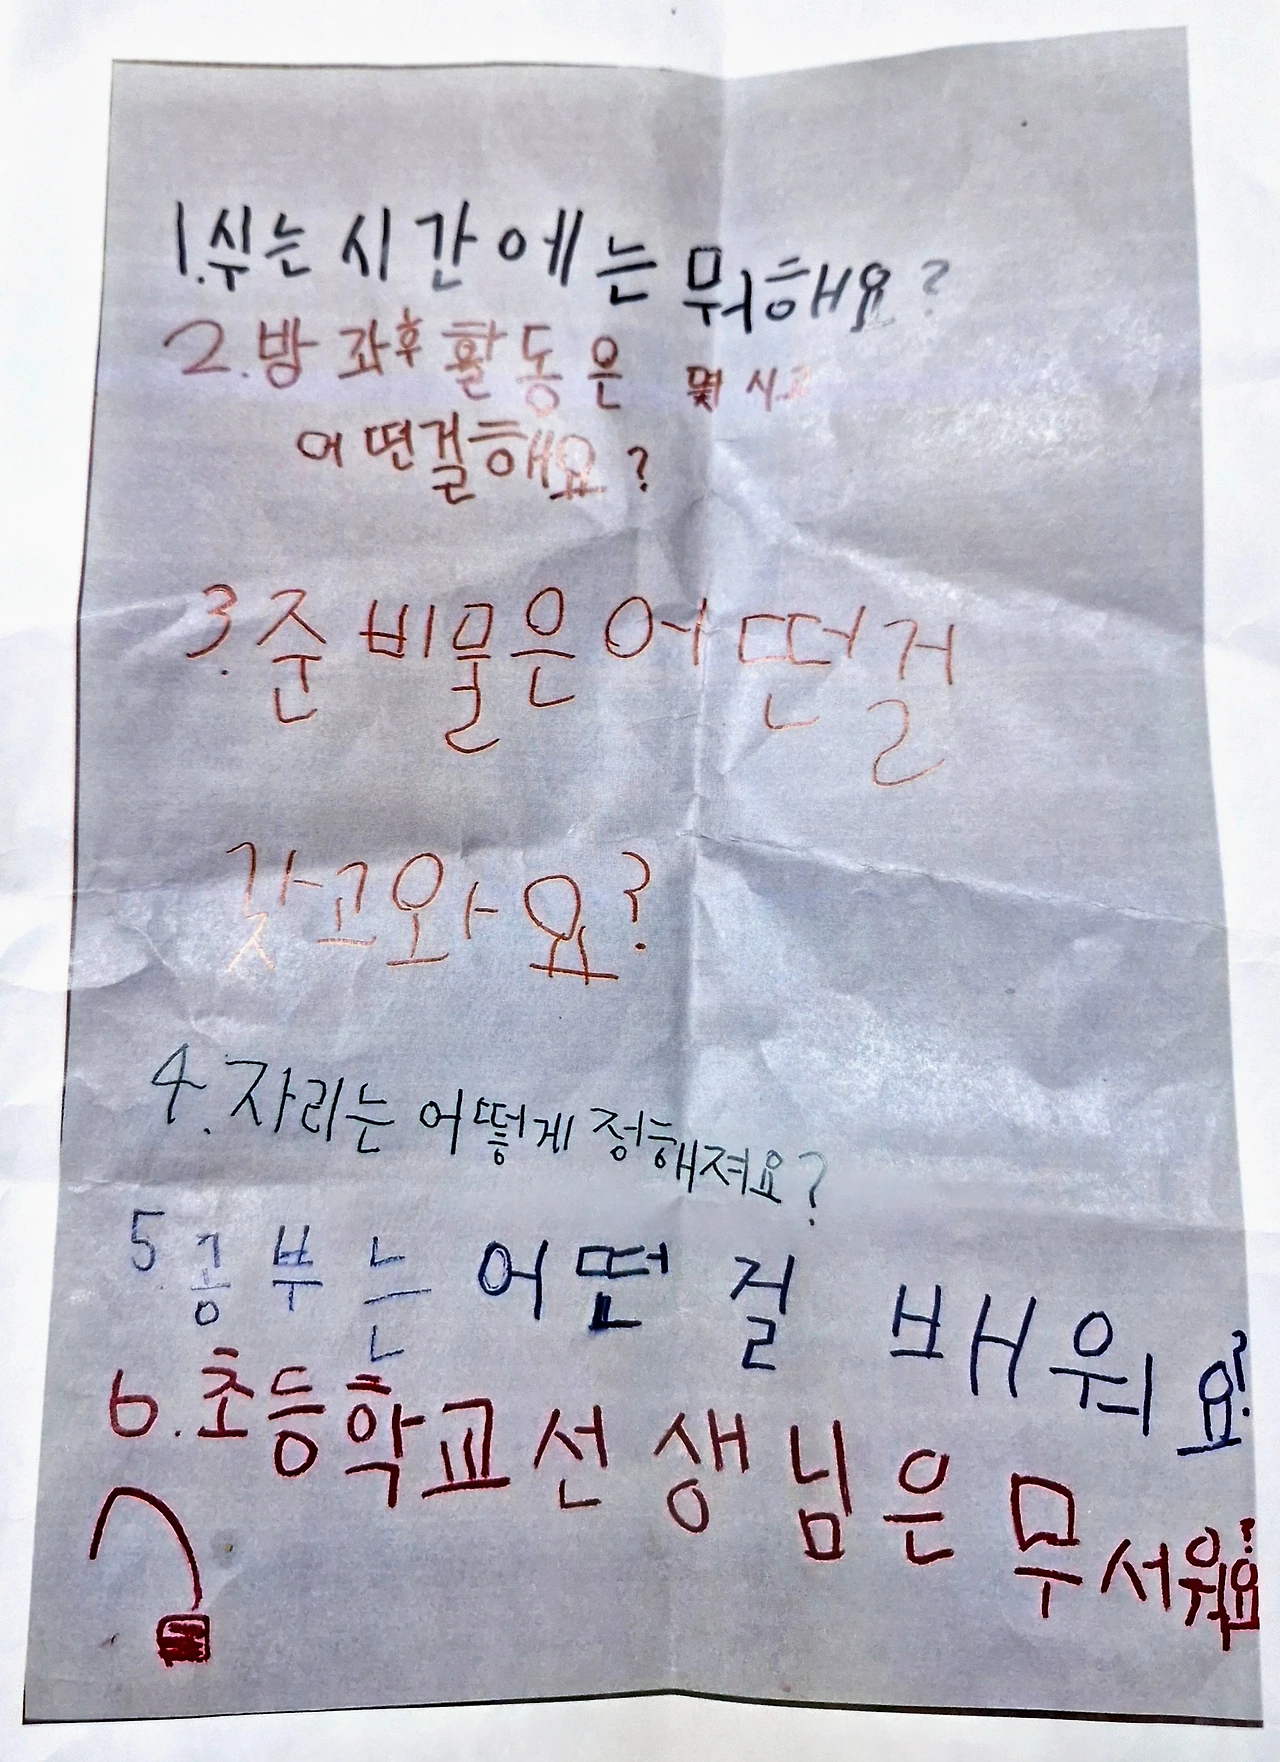 1.쉬는 시간에는 뭐해요?
2. 방과후 활동은 몇시고
어떤걸해요?
3. 준비물은 어떤걸
갖고와요?
4. 자리는 어떻게 정해져요?
5. 공부는 어떤 걸 배워요?
6. 초등학교 선생님은 무서워요?
?